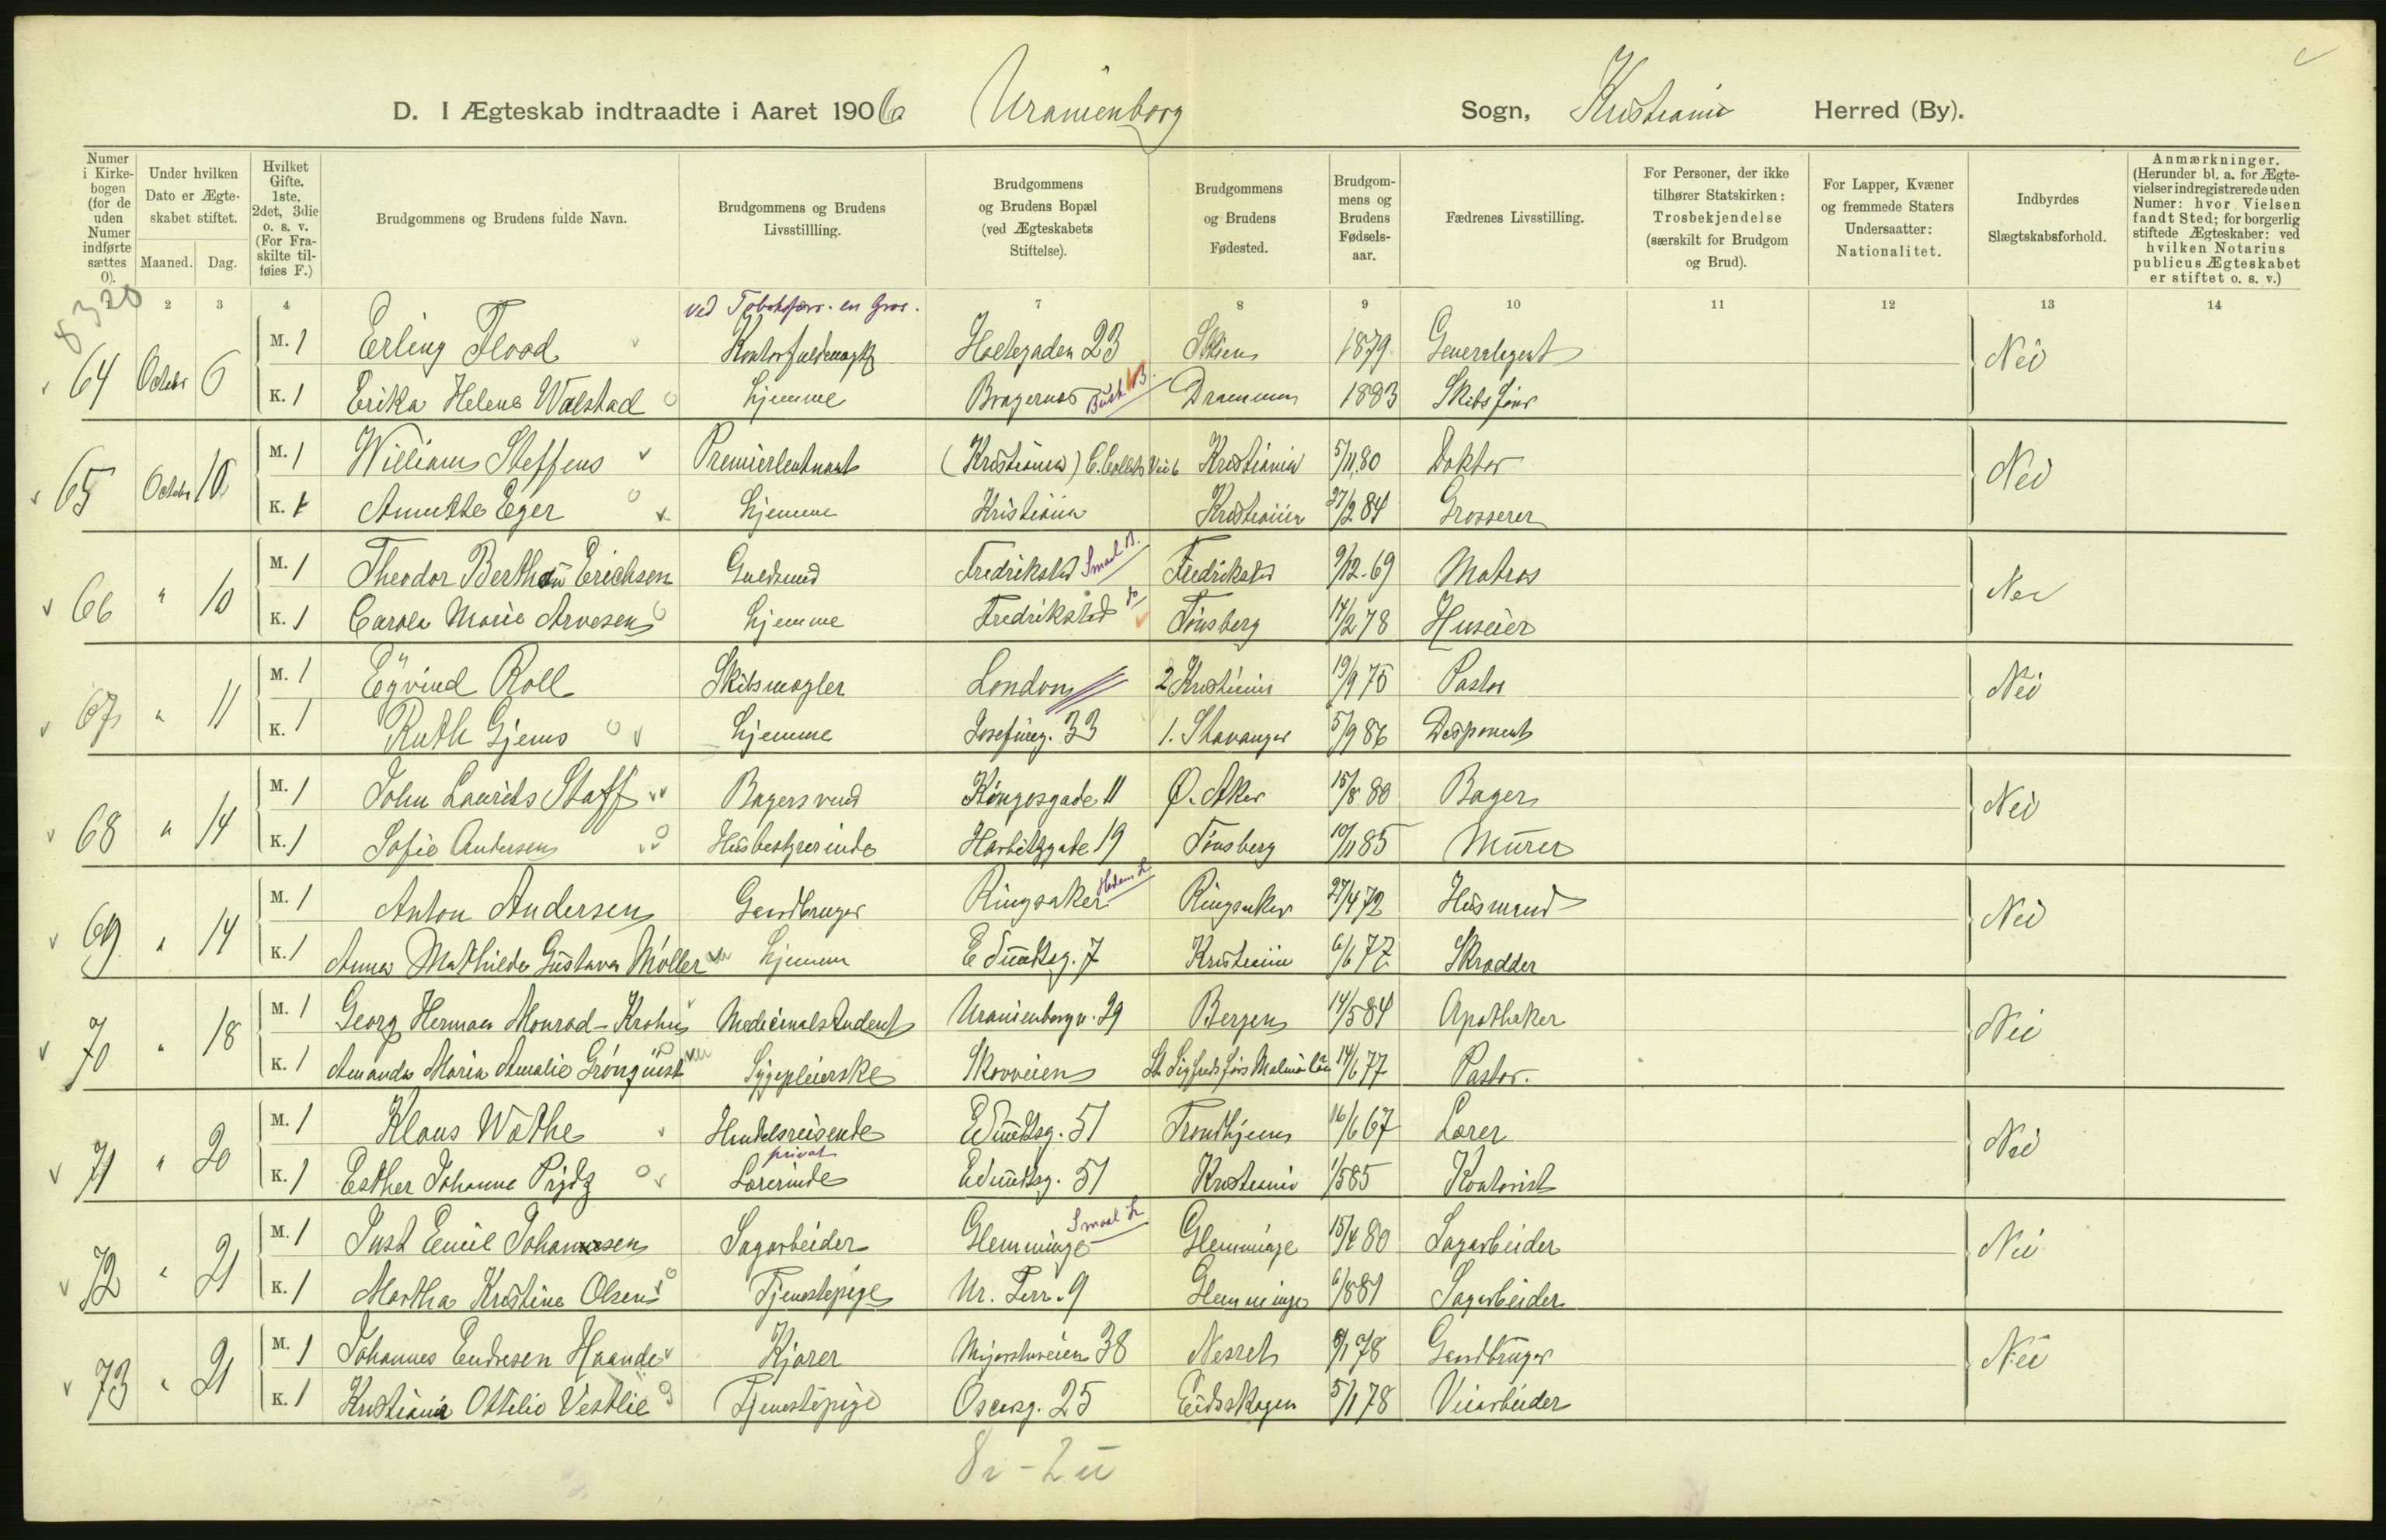 D. I Ægteskab indtraadte i Aaret 1906 Uranienborg Sogn, Kristiania Herred (By).
Numer i Kirkebogen (for de uden Numer indførte sættes 0).
Under hvilken Dato er Ægteskabet stiftet.
Maaned. Dag.
Hvilket Gifte. 1ste. 2det, 3die o. s. v. (For Fraskilte tilføies F.)
Brudgommens og Brudens fulde Navn.
Brudgommens og Brudens Livsstillling.
Brudgommens og Brudens Bopæl (ved Ægteskabets Stiftelse).
Brudgommens og Brudens Fødested.
Brudgommens og Brudens Fødselsaar.
Fædrenes Livsstilling.
For Personer, der ikke tilhører Statskirken: Trosbekjendelse (særskilt for Brudgom og Brud).
For Lapper, Kvæner og fremmede Staters Undersaatter: Nationalitet.
Indbyrdes Slægtskabsforhold.
Anmærkninger. (Herunder bl. a. for Ægtevielser indregistrerede uden Numer: hvor Vielsen fandt Sted; for borgerlig stiftede Ægteskaber: ved hvilken Notarius publicus Ægteskabet er stiftet o. s. v.)
8320 2 3 4 7 8 9 10 11 12 13 14
ved Tobaksforr. en gros.
M. 1 Erling Flood Kontorfuldmægt Holtegaden 23 Skien 1879 Generalagent
64 Octbr 6 Nei
K. 1 Erika Helene Walstad Hjemme Bragernes Busk B. Drammen 1883 Skibsfører
M. 1 William Steffens Premierleutnant (Kristiania) C. Colletts Vei 6 Kristiania 5/11 80 Doktor
65 Octbr 10 Nei
K. 1 Annette Eger Hjemme Kristiania Kristiania 27/2 84 Grosserer
M. 1 Theodor Berthaü Erichsen Guldsmed Fredrikstad Smaal B. Fredrikstad 9/12 69 Matros
66 " 10 Nei
K. 1 Carola Marie Arvesen Hjemme Fredrikstad do Tönsberg 14/2 78 Huseier
M. 1 Eyvind Roll Skibsmægler London 2 Kristiania 19/9 75 Pastor
67 " 11 Nei
K. 1 Ruth Gjems Hjemme Josefineg. 33 1. Stavanger 5/9 86 Disponent
M. 1 John Laurits Staff Bagersvend Kongosgade 11 Ø. Aker 15/8 80 Bager
68 " 14 Nei
K. 1 Sofie Andersen Husbestyrerinde Harbitzgade 19 Tönsberg 10/11 85 Murer
M. 1 Anton Andersen Gaardbruger Ringsaker Hedem. L Ringsaker 27/4 72 Husmand
69 " 14 Nei
K. 1 Anna Mathilde Gustava Möller Hjemme Eduntsg. 7 Kristiania 6/6 77 Skrædder
M. 1 Georg Herman Monrad-Krohn Medicinalstudent Uranienborgv. 29 Bergen 14/5 84 Apotheker
70 " 18 Nei
K. 1 Amanda Maria Amalie Grönquist Sygepleierske Skovveien St Sigfridsfors Malmö län 14/6 77 Pastor.
M. 1 Klaus Wathe Handelsreisende Eduntsg. 51 Trondhjem 16/6 67 Lærer
71 " 20 Nei
privat
K. 1 Esther Johanne Prydz Lærerinde Eduntsg. 51 Kristiania 1/5 85 Kontorist
M. 1 Just Emil Johannesen Sagarbeider Glemminge Smaal L Glemminge 15/4 80 Sagarbeider
72 " 21 Nei
K. 1 Martha Kristine Olsen Tjenestepige Ur. Terr. 9 Glemminge 6/8 81 Sagarbeider
M. 1 Johannes Endresen Haande Kjører Majorstuveien 38 Nesset 9/1 78 Gaardbruger
73 " 21 Nei
K. 1 Kristiania Ottilie Vestlie Tjenestepige Oscarsg. 25 Eidsskogen 5/1 78 Veiarbeider